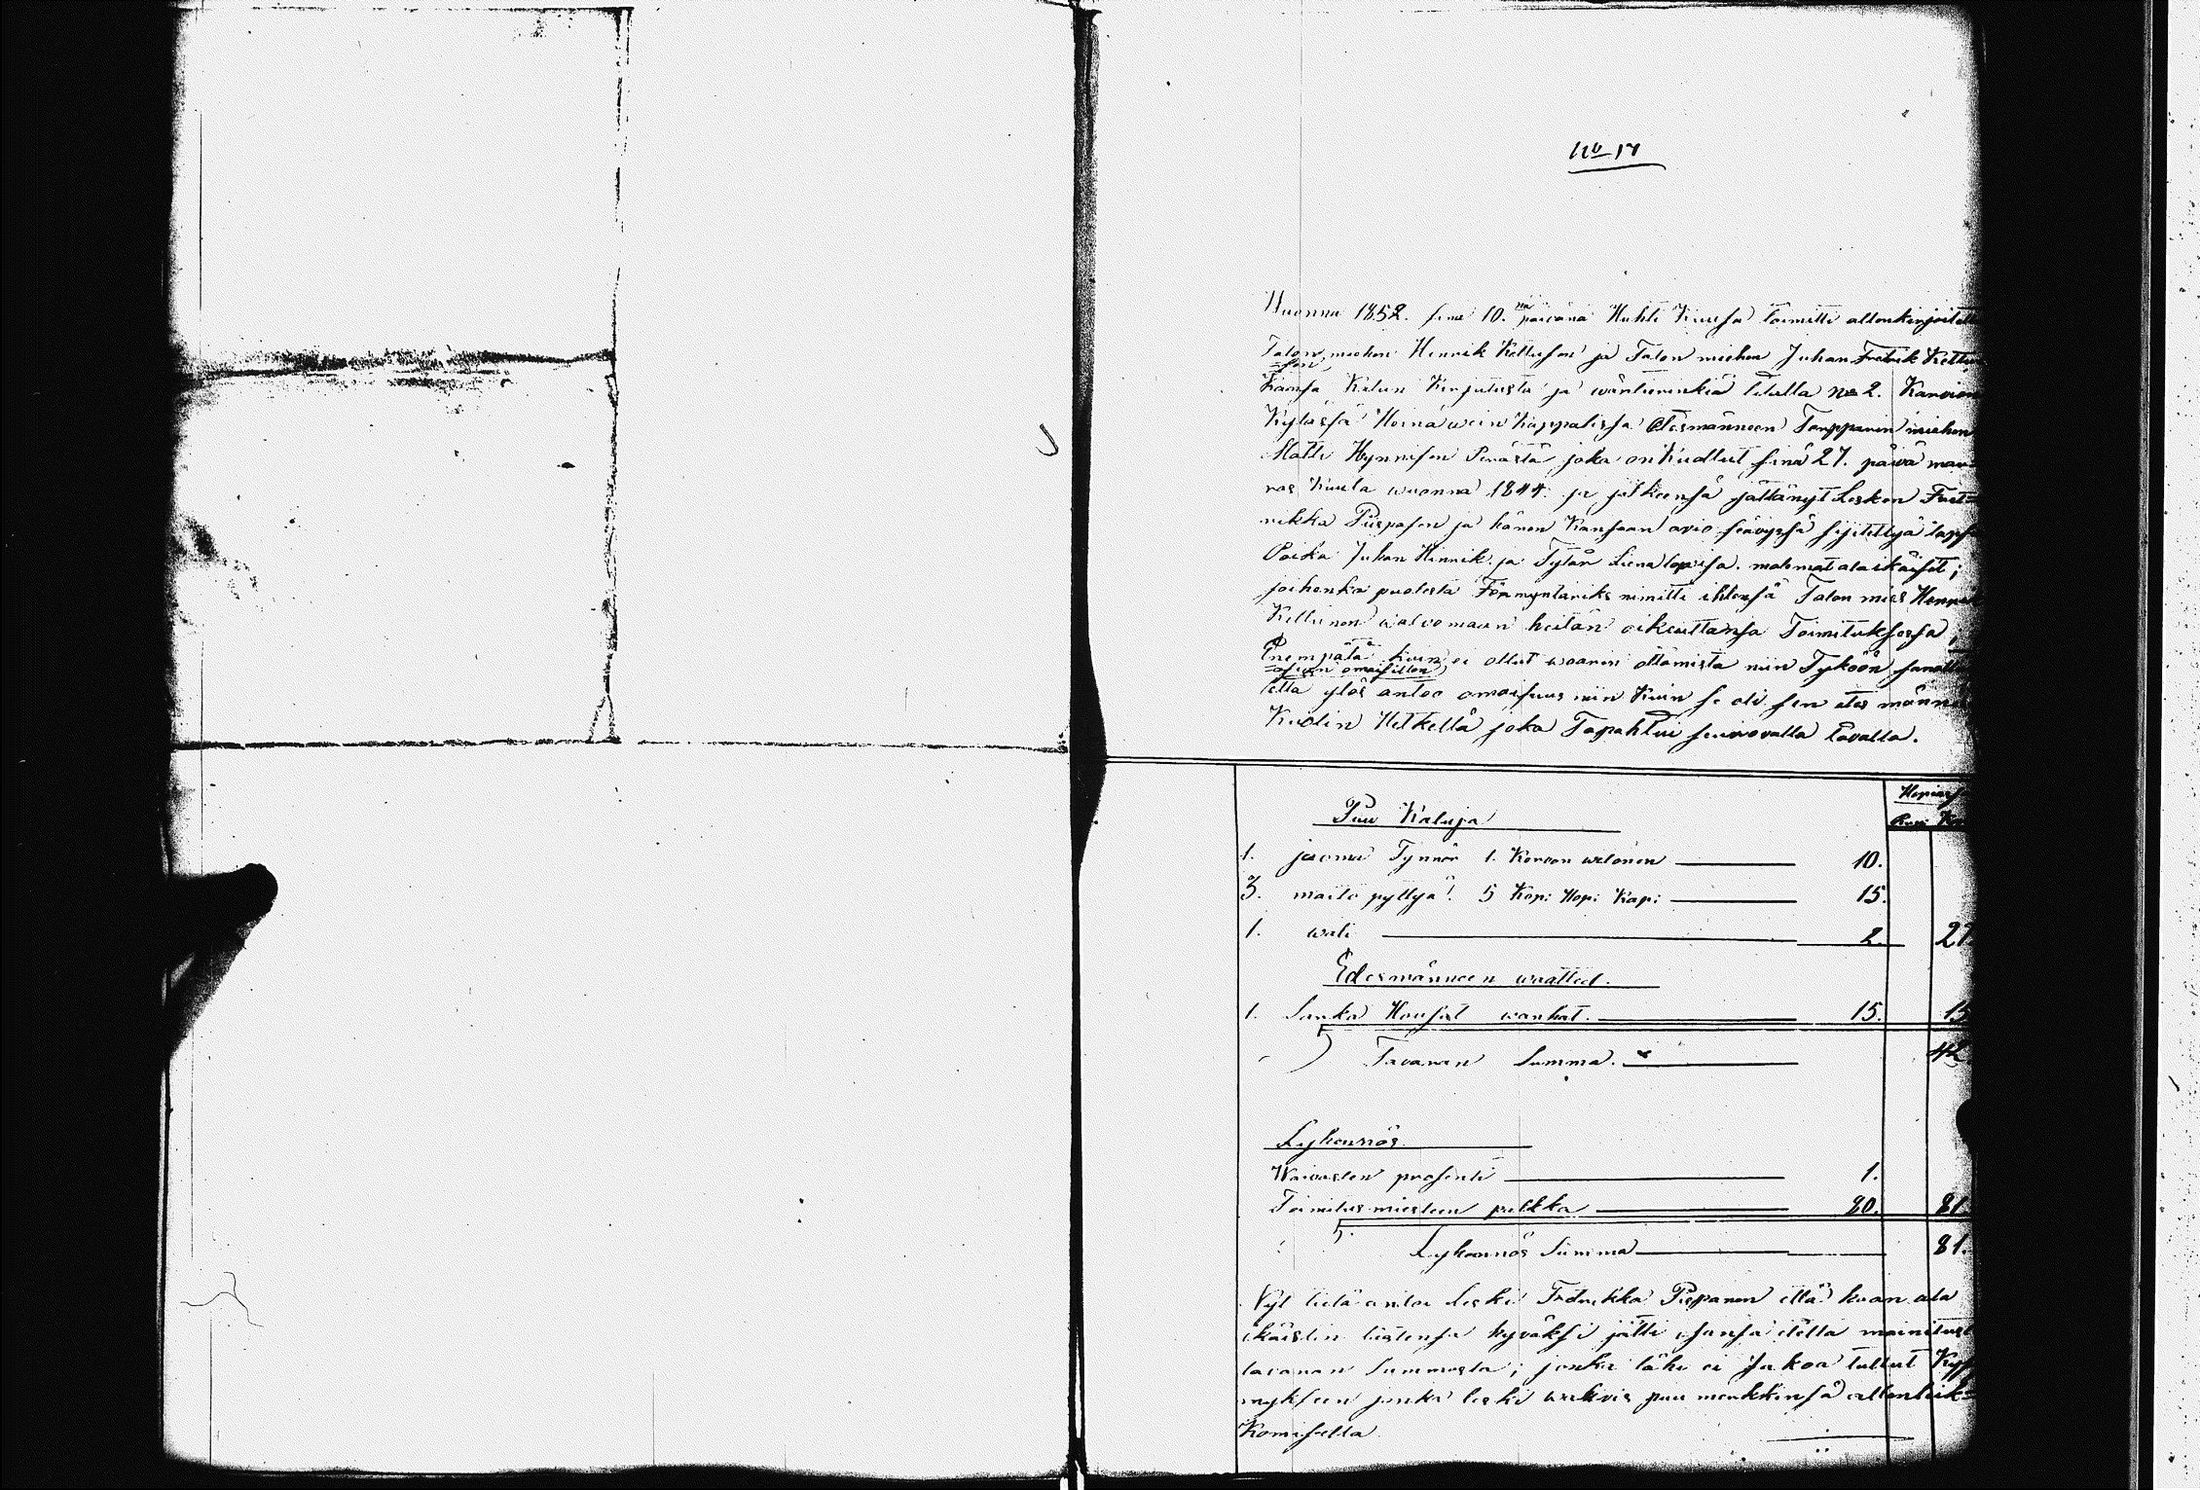 No 17
Wuonna 1852. sina 10. na päivänä Huhti Kuusa toimitti allonkirjoitettu
Talon miehen Hinrik Kettusen ja Talon miehen Juhan Fredrik Kettu
=sen,
Kansa Kalun Kirjutusta ja wärtierinkiä tilalla No 2. Karvion
Kylässä Heinäwein Kappalissa Edesmänneen Torpparin miehen
Matti Hynnisen Perästä joka on Kuollut sinä 27. päivä mar=
ras Kuula wuonna 1844. ja jälkeensä jättänyt Lesken Fret=
rikka Piispasen ja hänen Kansaan avio säävyssä sijitettyä lapse
Poika Juhan Hinrik ja Tytär Liena lovisa molemat alaikäiset;
joihenka puolesta Förmyntäriks nimitti ihtensä Talon mies Henrik
Kettunen walvomaan heitän oikeuttansa Toimituksessa,
Enempätä kuin ei ollut waarin ottamista niin Tyköön sanottu
=isen omaisillen
että ylös antoo omaisuus niin Kuin se oli sen edes männen
Kuolin Hetkellä joka Tapahtui seuraavalla tavalla.
Hopiassa
Puu Kaluja
Rup: Kop
1. juoma Tynnör 1. Korvon wetonen 10.
3. maito pyttyä 5 Kopi Hopi Kapi 15.
1. wati 2. 27.
Edesmänneen waatted.
1. Sarka Housut wanhat. 15. 15
Tavaran Summa. 42
Lyhennös
Waivasten prosenti 1.
Toimitus miesteen palkka 80. 81
Lyhennös Summa 81.
Nyt tietä antoi Leski Fredrikka Piispanen että hään ala
ikäistin lastensa hyväksi jätti osansa ilellä mainitust
tavaran Summasta; jonka tähe ei Jakoa tullut Kysy
mykseen jonka leski wahvis puu merkkinsä allenliik=
Komisella